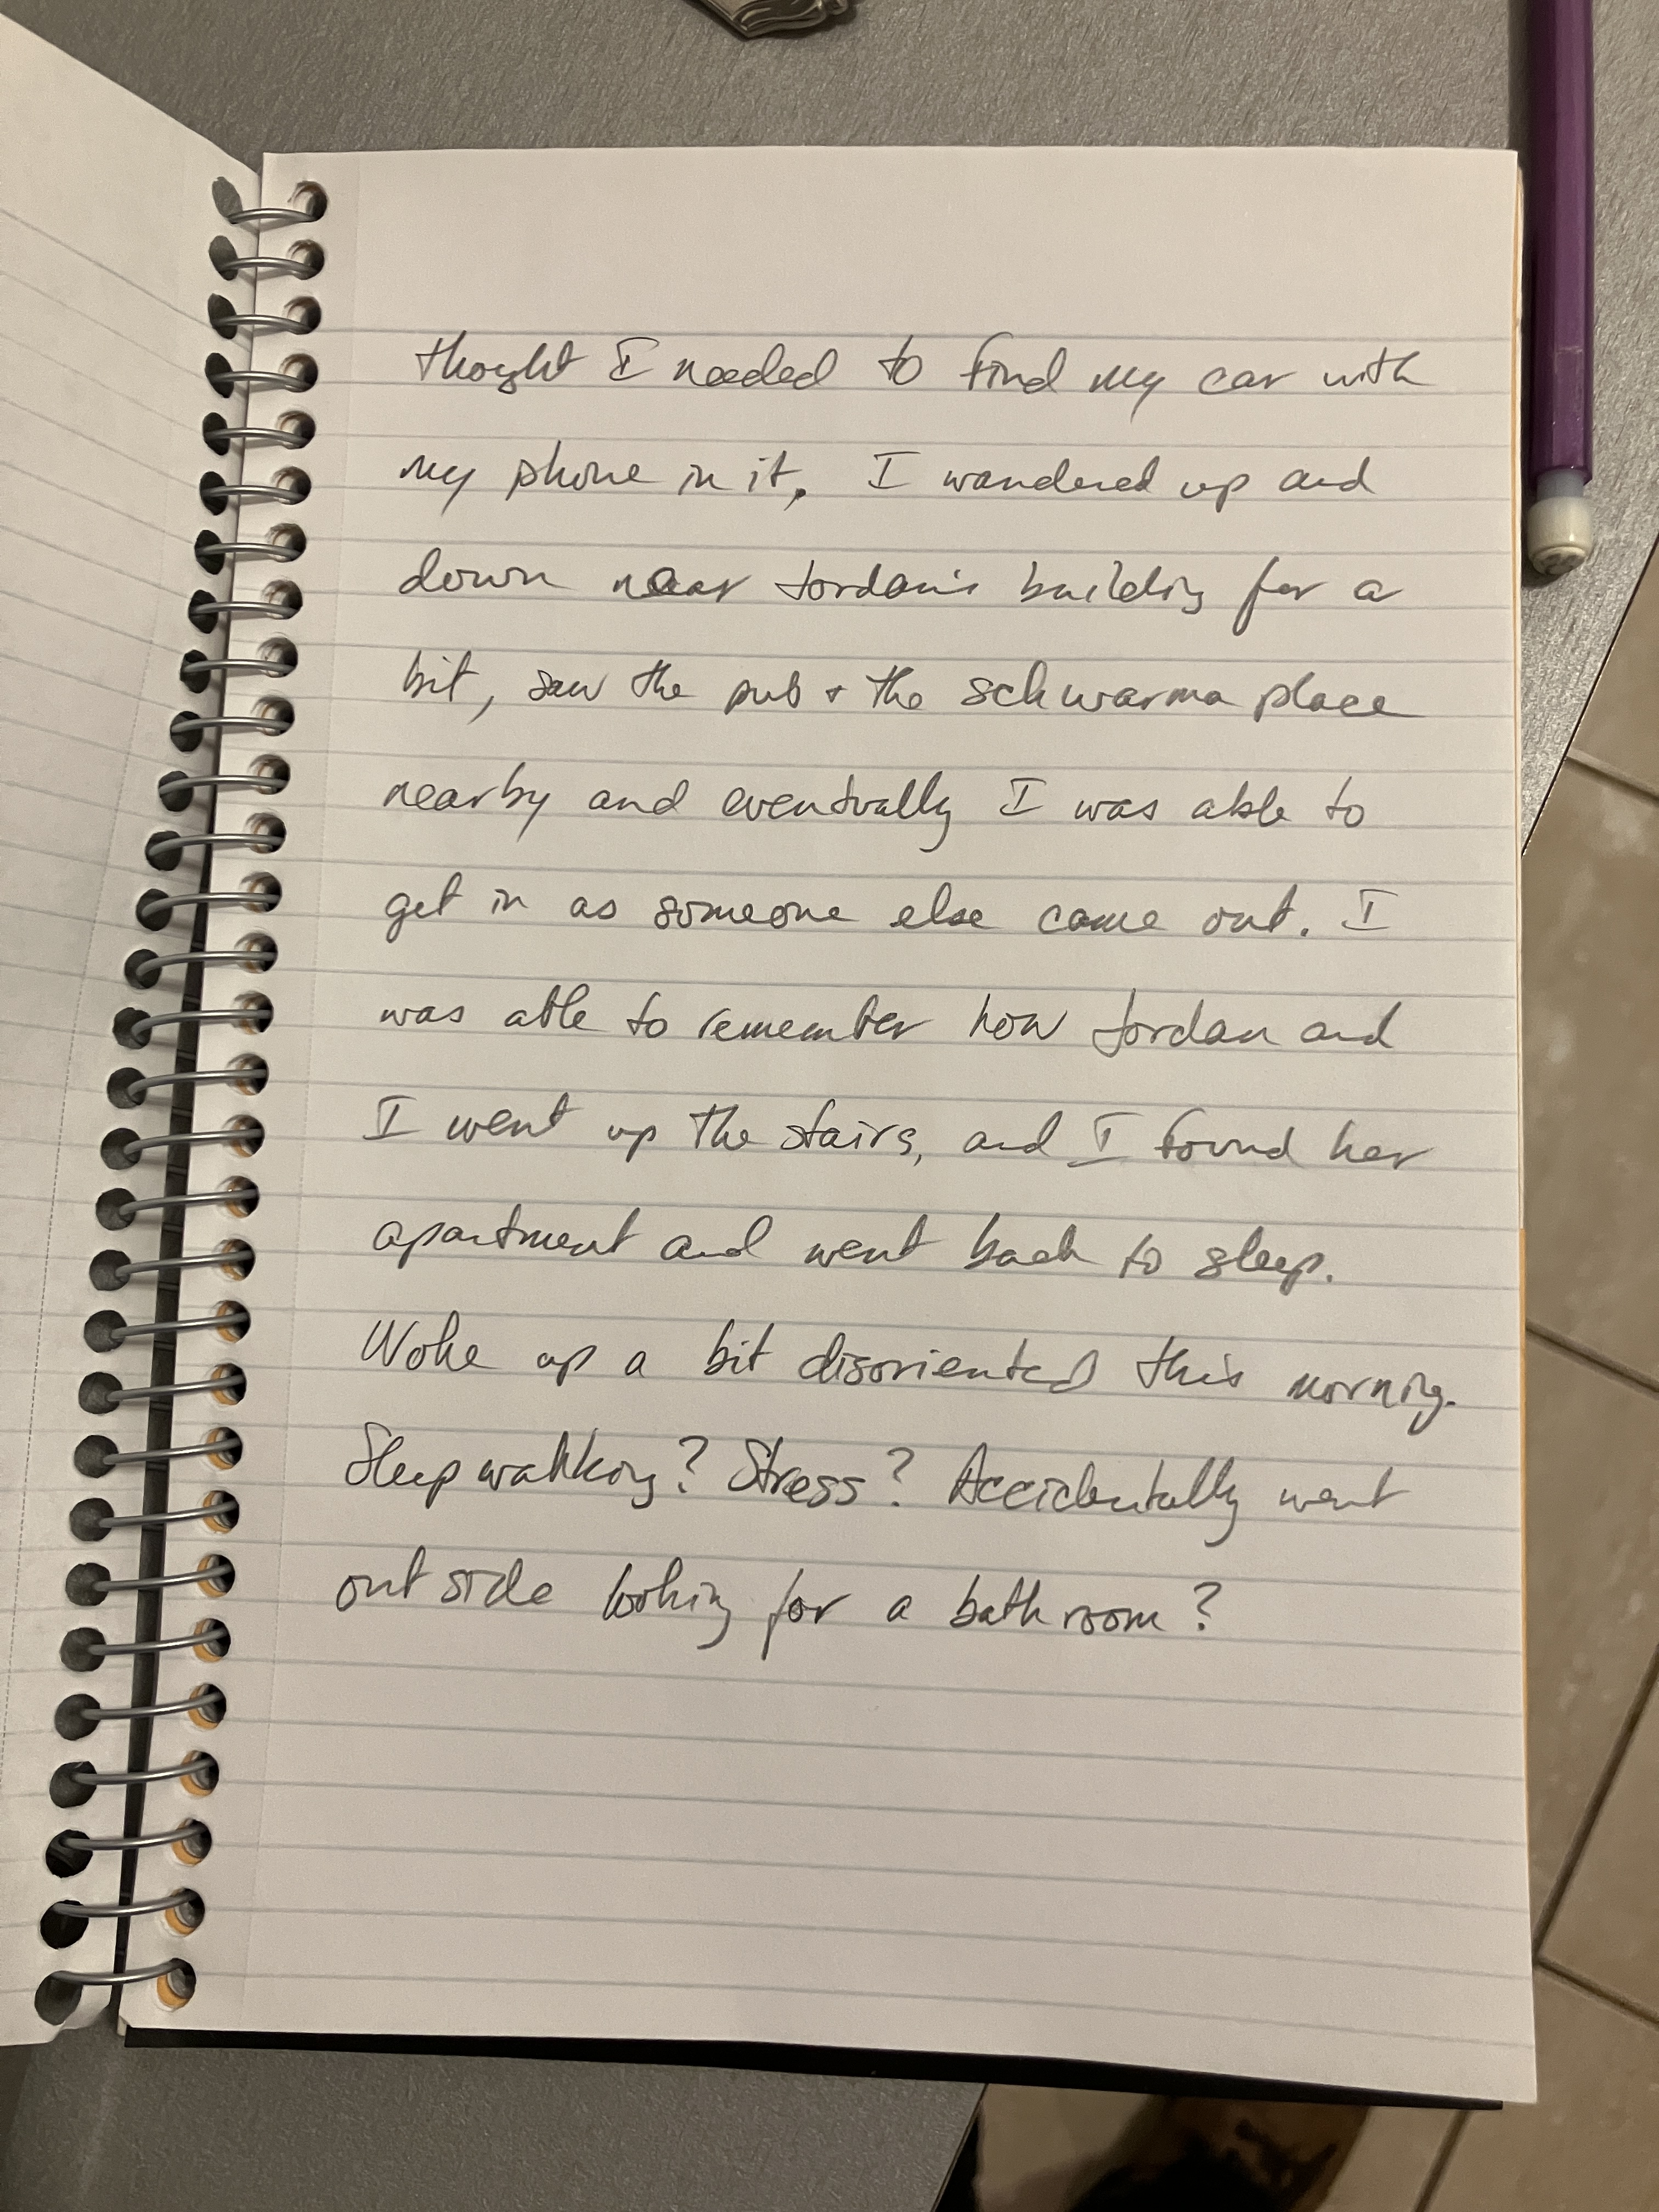 thoght I needed to find my car with
my phone in it, I wandered up and
down near Jordan's building for a
bit, saw the pub + the schwarma place
nearby and eventually I was able to
get in as someone else came out. I
was able to remember how Jordan and
I went up the stairs, and I found her
apartment and went back to sleep.
Woke up a bit disoriented this morning.
Sleepwalking? Stress? Accidentally went
outside looking for a bathroom?